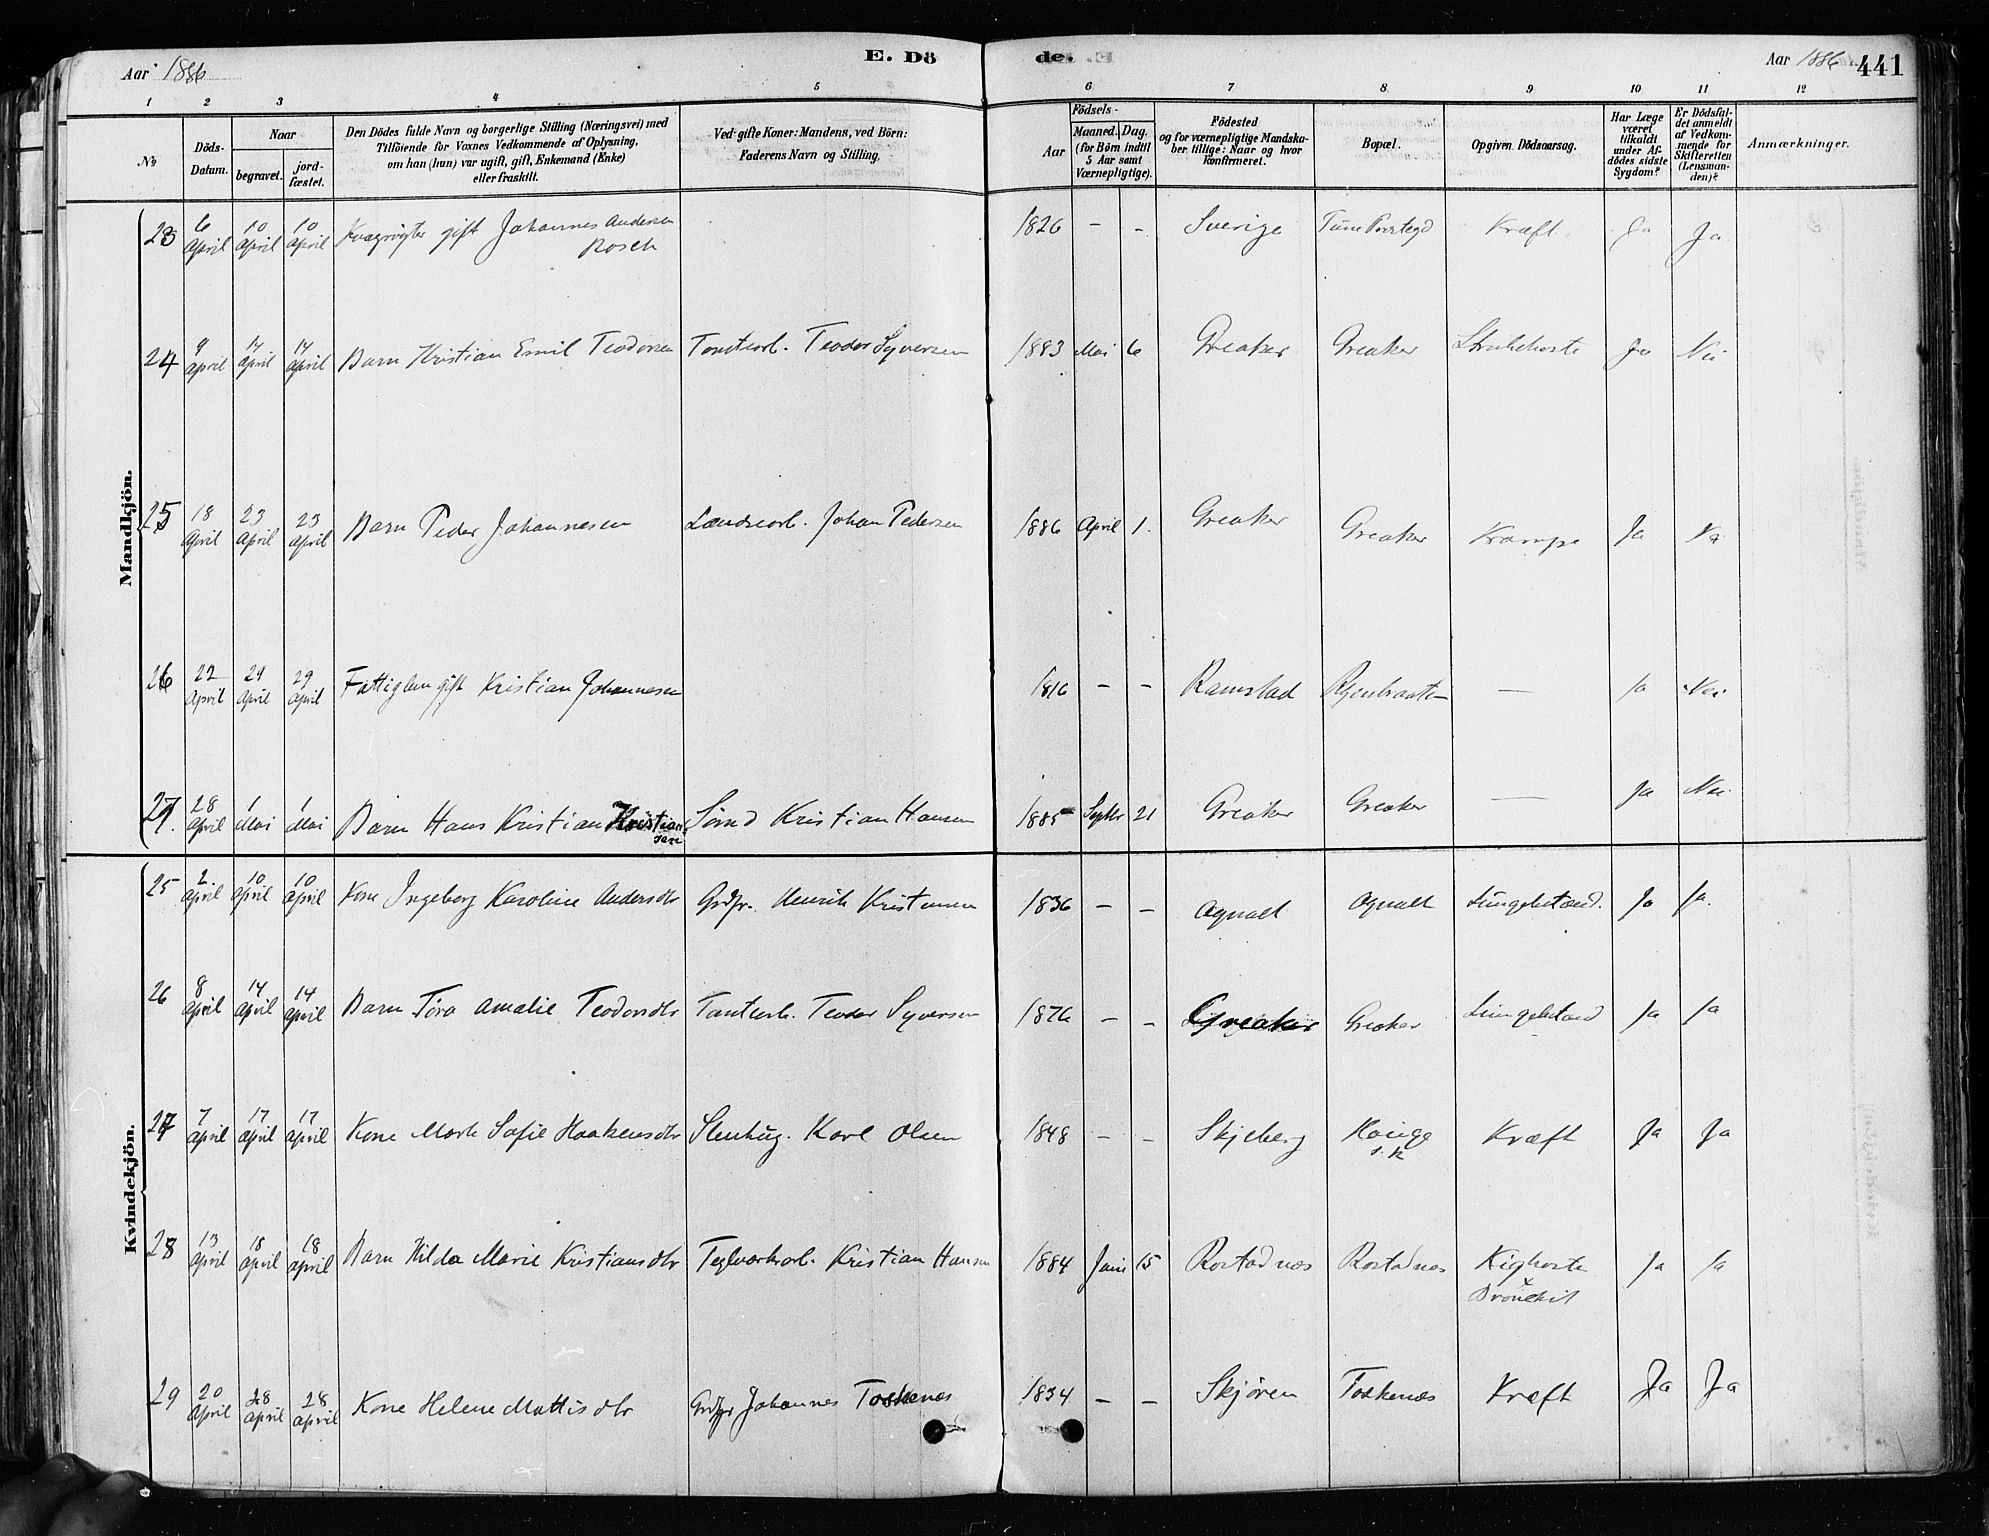 Aar 1886
E. Dö
de.
Aar 1886
441
1 2 3 4 5 6 7 8 9 10 11 12
No
Döds-Datum.
Naar
begravet.
jord-fæstet.
Den Dödes fulde Navn og borgerlige Stilling (Næringsvei) med
Tilföiende for Voxnes Vedkommende af Oplysning,
om han (hun) var ugift, gift, Enkemand (Enke)
eller fraskilt.
Ved gifte Koner: Mandens, ved Börn:
Faderens Navn og Stilling.
Födsels-
Aar
Maaned. Dag.
(for Börn indtil
5 Aar samt
Værnepligtige).
Födested
og for værnepligtige Mandska-
ber tillige: Naar og hvor
konfirmeret.
Bopæl.
Opgiven Dödsaarsag.
Har Læge
været
tilkaldt
under Af-
dödes sidste
Sygdom?
Er Dödsfal-
det anmeldt
af Vedkom-
mende for
Skifteretten
(Lensman-
den)?
Anmærkninger.
Mandkjön.
23 6 April 10 April 10 April gift Johannes Andersen Rosen 1826 - - Sverige Tune Kræft Ja Ja
24 9 April 14 April 14 April Barn Kristian Emil Teodorsen Tomtearb. Teodor Syversen 1883 Mai 6 Greaker Greaker Strubehoste Ja Nei
25 18 April 23 April 23 April Barn Peder Johannesen Landsearb. Johan Pedersen 1886 April 1. Greaker Greaker Krampe Ja
26 22 April 29 April 29 April Fattiglem gift Kristian Johannesen 1816 - - Ramstad — Ja Nei
27. 28 April 1 Mai 1 Mai Barn Hans Kristian Kristiansen Sömd Kristian Hansen 1885 Septbr 21 Greaker Greaker — Ja Nei
Kvindekjön.
25 2 April 10 April 10 April Kone Ingeborg Karoline Andersdtr Grdbr. Henrik Kristensen 1836 - - Agnalt Agnalt Lungebetænd. Ja Ja.
26 8 April 14 April 14 April Barn Tora Amalie Teodorsdtr Tomtearb. Teodor Syversen 1876 - - Greaker Greaker Lungebetænd Ja Ja
27 7 April 17 April 17 April Kone Marte Sofie Haakensdtr Stenhug. Karl Olsen 1848 - - Skjeberg Hauge s.k Kræft Ja Ja
28 13 April 18 April 18 April Barn Hilda Marie Kristiansdtr Teglværksarb. Kristian Hansen 1884 Juni 15 Rostadnes Rostadnes Kighoste & Bronchit Ja Ja
29 20 April 28 April 28 April Kone Helene Mattisdtr Grdbr Johannes Toskenæs 1834 - - Skjören Toskenæs Kræft Ja Ja